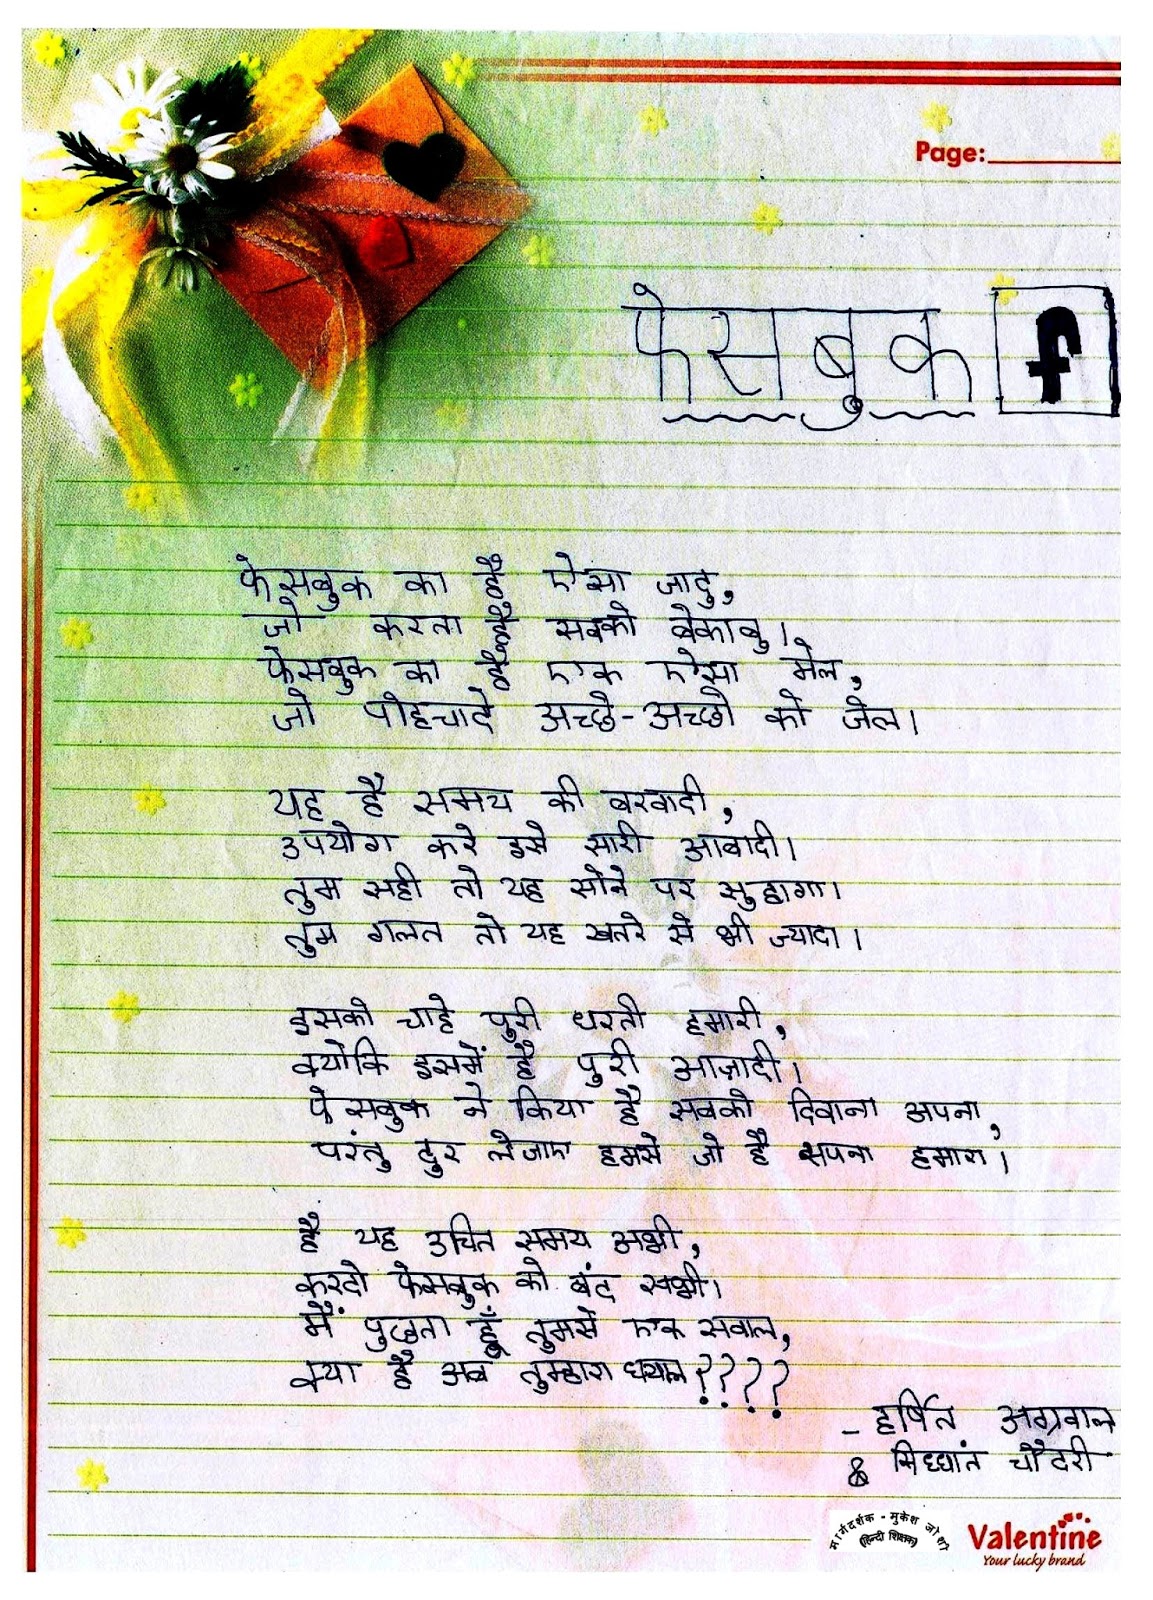 Page:
फेसबुक f
फेसबुक का है ऐसा जादु,
जो करता है सबको बेकाबु।
फेसबुक का है एक ऐसा मेल,
जो पोहचादे अच्छे-अच्छो को जेल।
यह है समय की बरबादी,
उपयोग करे इसे सारी आबादी।
तुम सही तो यह सोने पर सुहागा।
तुम गलत तो यह खतरे से भी ज्यादा।
इसको चाहे पुरी धरती हमारी,
क्योकि इसमें है पुरी आज़ादी।
फेसबुक ने किया है सबको दिवाना अपना,
परंतु दुर लेजाए हमसे जो है सपना हमारा।
है यह उचित समय अभी,
करदो फेसबुक को बंद सभी।
मैं पुछता हूँ तुमसे एक सवाल,
क्या है अब तुम्हारा ध्याल????
- हर्षित अग्रवाल
& सिध्धांत चौदरी
मार्गदर्शक - मुकेश जोशी
(हिन्दी शिक्षक)
Valentine
Your lucky brand